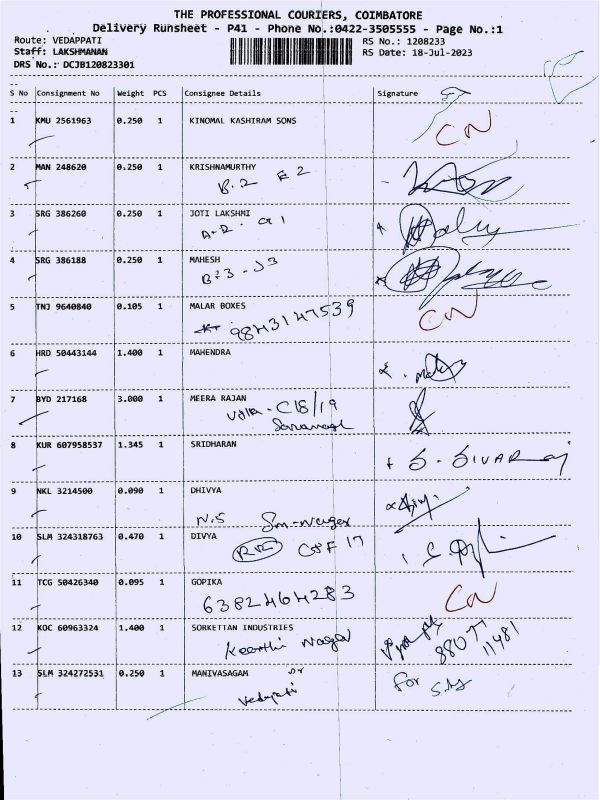 THE PROFESSIONAL COURIERS, COIMBATORE
Delivery Runsheet - P41 - Phone No.:0422-3505555 - Page No.:1
Route: VEDAPPATI RS No.: 1208233
Staff: LAKSHMANAN RS Date: 18-Jul-2023
DRS No.: DCJB120823301
S No Consignment No Weight PCS Consignee Details Signature
1 KMU 2561963 0.250 1 KINOMAL KASHIRAM SONS
CN
2 MAN 248620 0.250 1 KRISHNAMURTHY
B-2 F2
3 SRG 386260 0.250 1 JOTI LAKSHMI
A-2- G1
4 SRG 386188 0.250 1 MAHESH
B-3 - J3
5 TNJ 9640840 0.105 1 MALAR BOXES
9843147539 CN
6 HRD 50443144 1.400 1 MAHENDRA
7 BYD 217168 3.000 1 MEERA RAJAN
C18/19
8 KUR 607958537 1.345 1 SRIDHARAN
S. SIVARAJ
9 NKL 3214500 0.090 1 DHIVYA
N.5 Sm-Nagar
10 SLM 324318763 0.470 1 DIVYA
17
11 TCG 50426340 0.095 1 GOPIKA
6382464283 CN
12 KOC 60963324 1.400 1 SORKETTAN INDUSTRIES
Keerthi Nagar
11481
13 SLM 324272531 0.250 1 MANIVASAGAM
Vedapati For